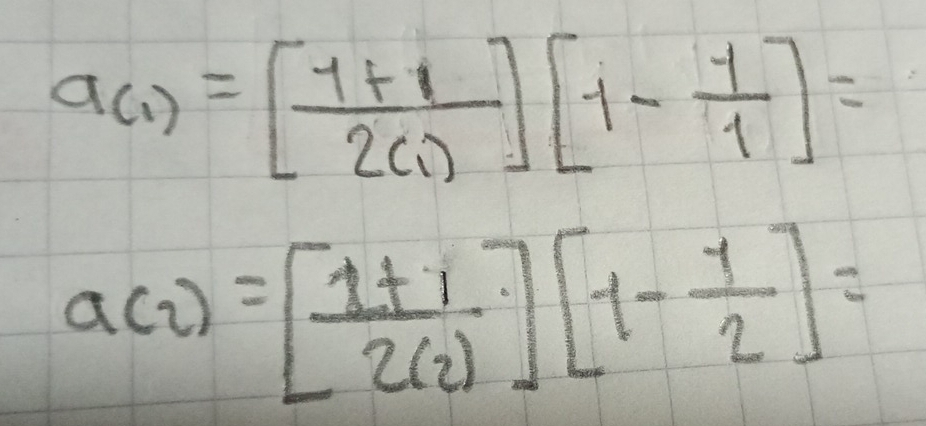 a(1) = [(1+1)/(2(1))] [1 - 1/1] =
a(2) = [(1+1)/(2(2))] [1 - 1/2] =